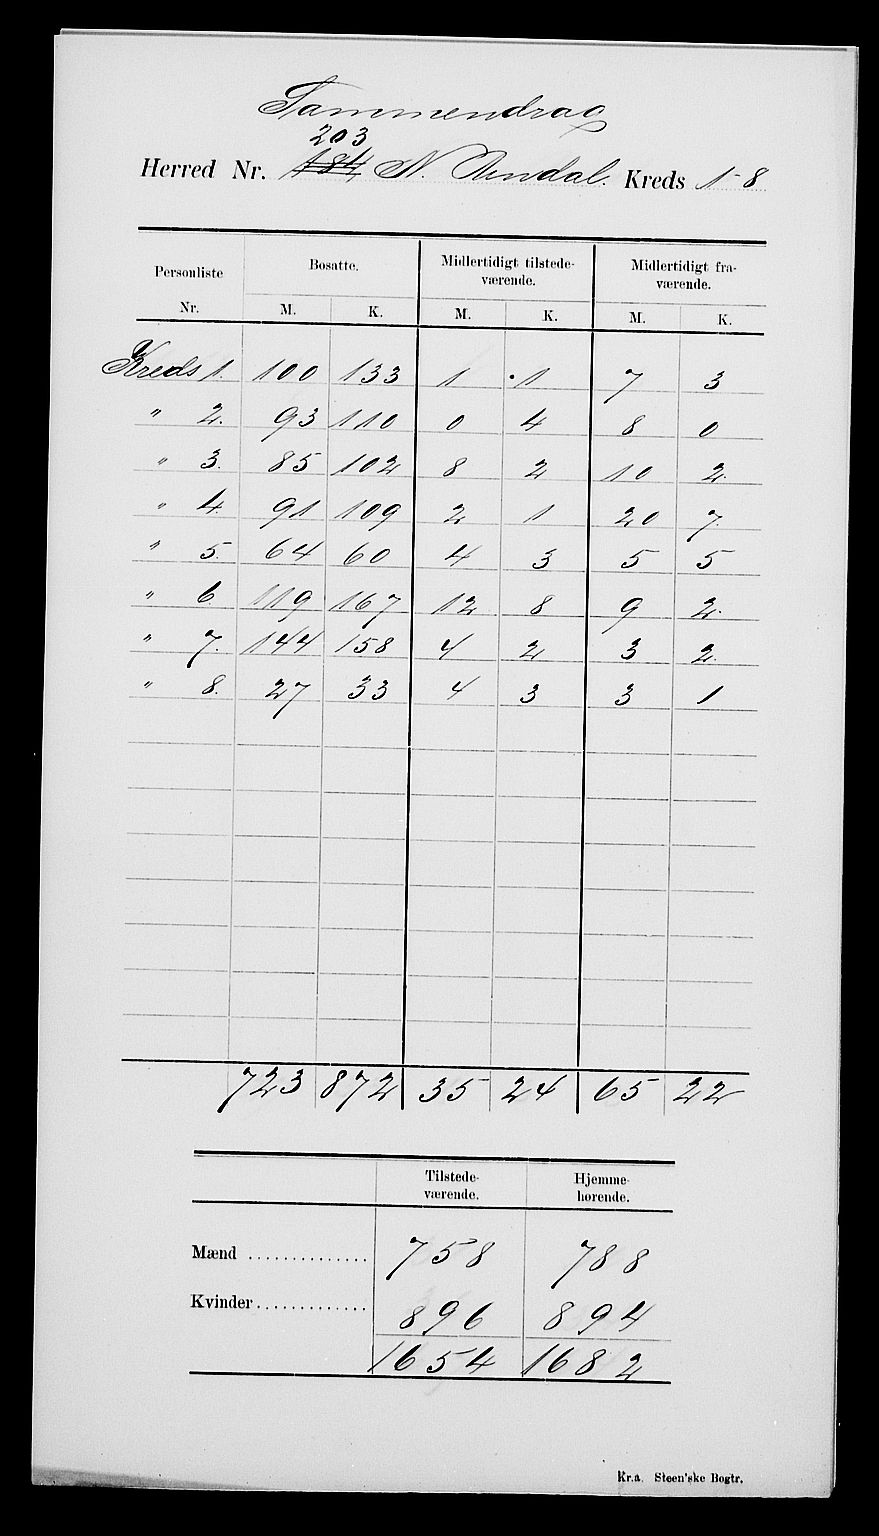 Sammendrag
203
Herred Nr. 184 N. Aurdal. Kreds 1-8
Personliste Nr. Bosatte. Midlertidigt tilstede-værende. Midlertidigt fra-værende.
M. K. M. K. M. K.
Kreds 1. 100 133 1 1 7 3
" 2. 93 110 0 4 8 0
" 3. 85 102 8 2 10 2.
" 4. 91 109 2 1 20 7.
" 5. 64 60 4 3 5 5
" 6 119 167 12 8 9 2.
" 7. 144 158 4 2 3 2.
" 8. 27 33 4 3 3 1
723 872 35 24 65 22
Tilstede-værende. Hjemme-hørende.
Mænd .............. 758 788
Kvinder............. 896 894
1654 1682
Kr.a. Steen'ske Bogtr.